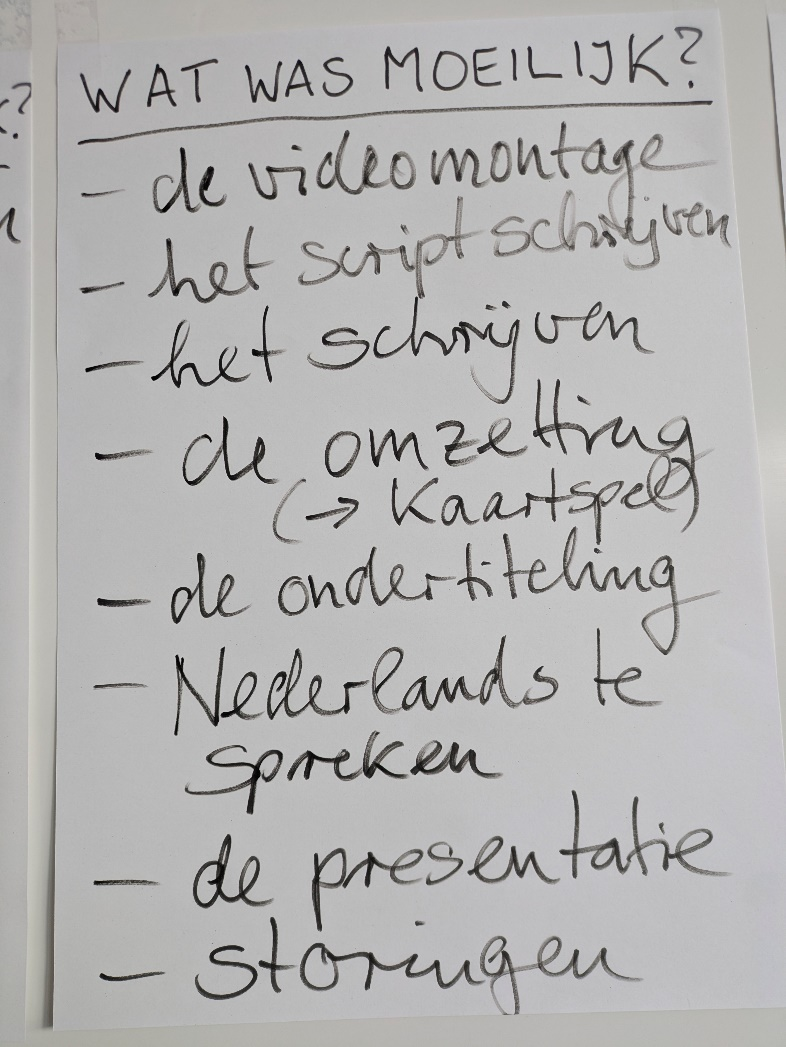 WAT WAS MOEILIJK?
- de videomontage
- het script schrijven
- het schrijven
- de omzetting
(→ Kaartspel)
- de ondertiteling
- Nederlands te
spreken
- de presentatie
- storingen